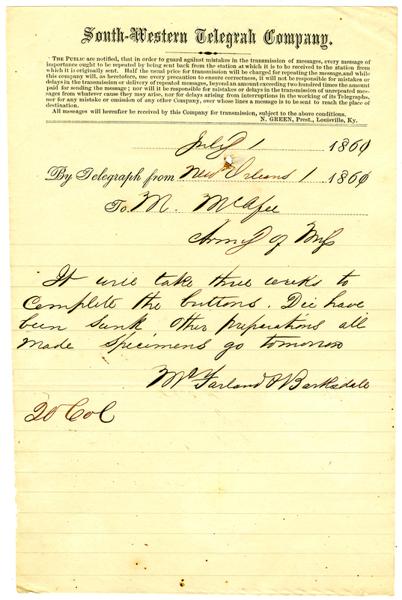 South-Western Telegrah Company.
THE PUBLIC are notified, that in order to guard against mistakes in the transmission of messages, every message of
importance ought to be repeated by being sent back from the station at which it is to be received to the station from
which it is originally sent. Half the usual price for transmission will be charged for repeating the message, and while
this company will, as heretofore, use every precaution to ensure correctness, it will not be responsible for mistakes or
delays in the transmission or delivery of repeated messages, beyond an amount exceeding two hundred times the amount
paid for sending the message; nor will it be responsible for mistakes or delays in the transmission of unrepeated mes-
sages from whatever cause they may arise, nor for delays arising from interruptions in the working of its Telegraphs,
nor for any mistake or omission of any other Company, over whose lines a message is to be sent to reach the place of
destination.
All messages will hereafter be received by this Company for transmission, subject to the above conditions.
N. GREEN, Prest., Louisville, Ky.
July 1 1860
By Telegraph from New Orleans 1 1860
To M. McAfee
Army of Miss
It will take three weeks to
complete the buttons. Die have
been sunk other preparations all
made specimens go tomorrow
McFarland & Barksdale
20 Col